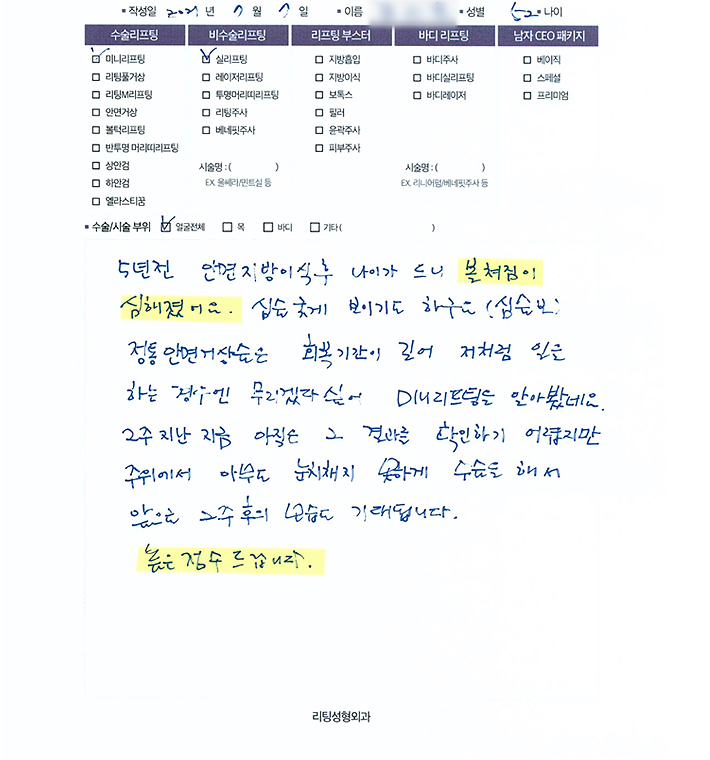 ▪ 작성일 2021 년 7 월 7 일 ▪ 이름 ▪ 성별 52 ▪ 나이
수술리프팅 비수술리프팅 리프팅 부스터 바디 리프팅 남자 CEO 패키지
☑ 미니리프팅 ☑ 실리프팅 ☐ 지방흡입 ☐ 바디주사 ☐ 베이직
☐ 리팅풀거상 ☐ 레이저리프팅 ☐ 지방이식 ☐ 바디실리프팅 ☐ 스페셜
☐ 리팅M리프팅 ☐ 투명머리띠리프팅 ☐ 보톡스 ☐ 바디레이저 ☐ 프리미엄
☐ 안면거상 ☐ 리팅주사 ☐ 필러
☐ 볼턱리프팅 ☐ 베네핏주사 ☐ 윤곽주사
☐ 반투명 머리띠리프팅 ☐ 피부주사
☐ 상안검 시술명 : ( ) 시술명 : ( )
☐ 하안검 EX. 울쎄라/민트실 등 EX. 리니어펌/베네핏주사 등
☐ 엘라스티꿈
▪ 수술/시술 부위 ☑ 얼굴전체 ☐ 목 ☐ 바디 ☐ 기타 ( )
5년전 안면지방이식후 나이가 드니 볼쳐짐이
심해졌어요. 보이기도 하구요
정통안면거상술은 회복기간이 길어 저처럼 일을
하는 경우엔 무리겠다 싶어 미니리프팅을 알아봤네요.
2주 지난 지금 아직은 그 결과를 확인하기 어렵지만
주위에서 아무도 눈치채지 못하게 수술을 해서
앞으로 2주후의 모습도 기대됩니다.
높은 점수 드립니다.
리팅성형외과